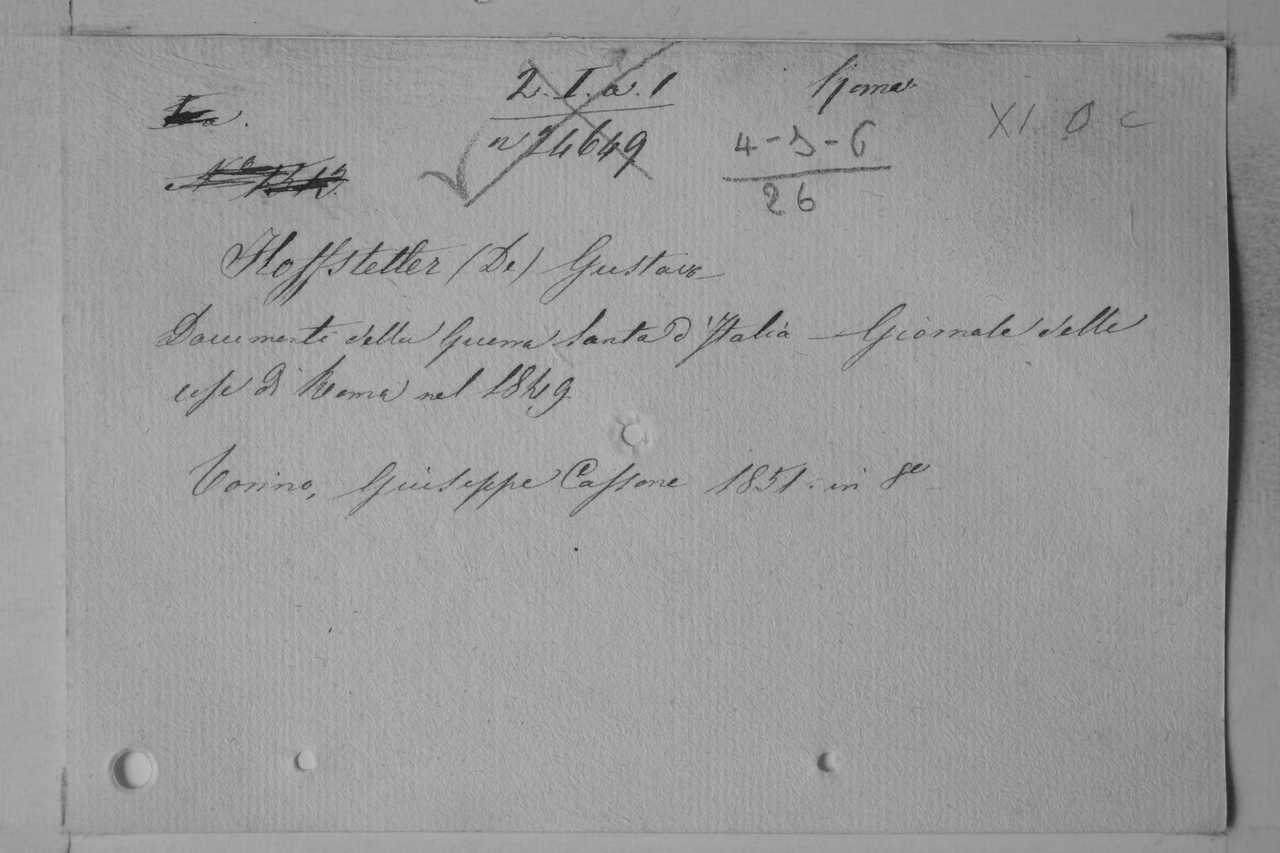 2. I. a. 1
Roma
XI. D c
n 14649
4-5-6
26
Hoffstetter (De) Gustavo
Documenti della Guerra Santa d'Italia — Giornale delle
cose di Roma nel 1849
Torino, Giuseppe Cassone 1851. in 8°